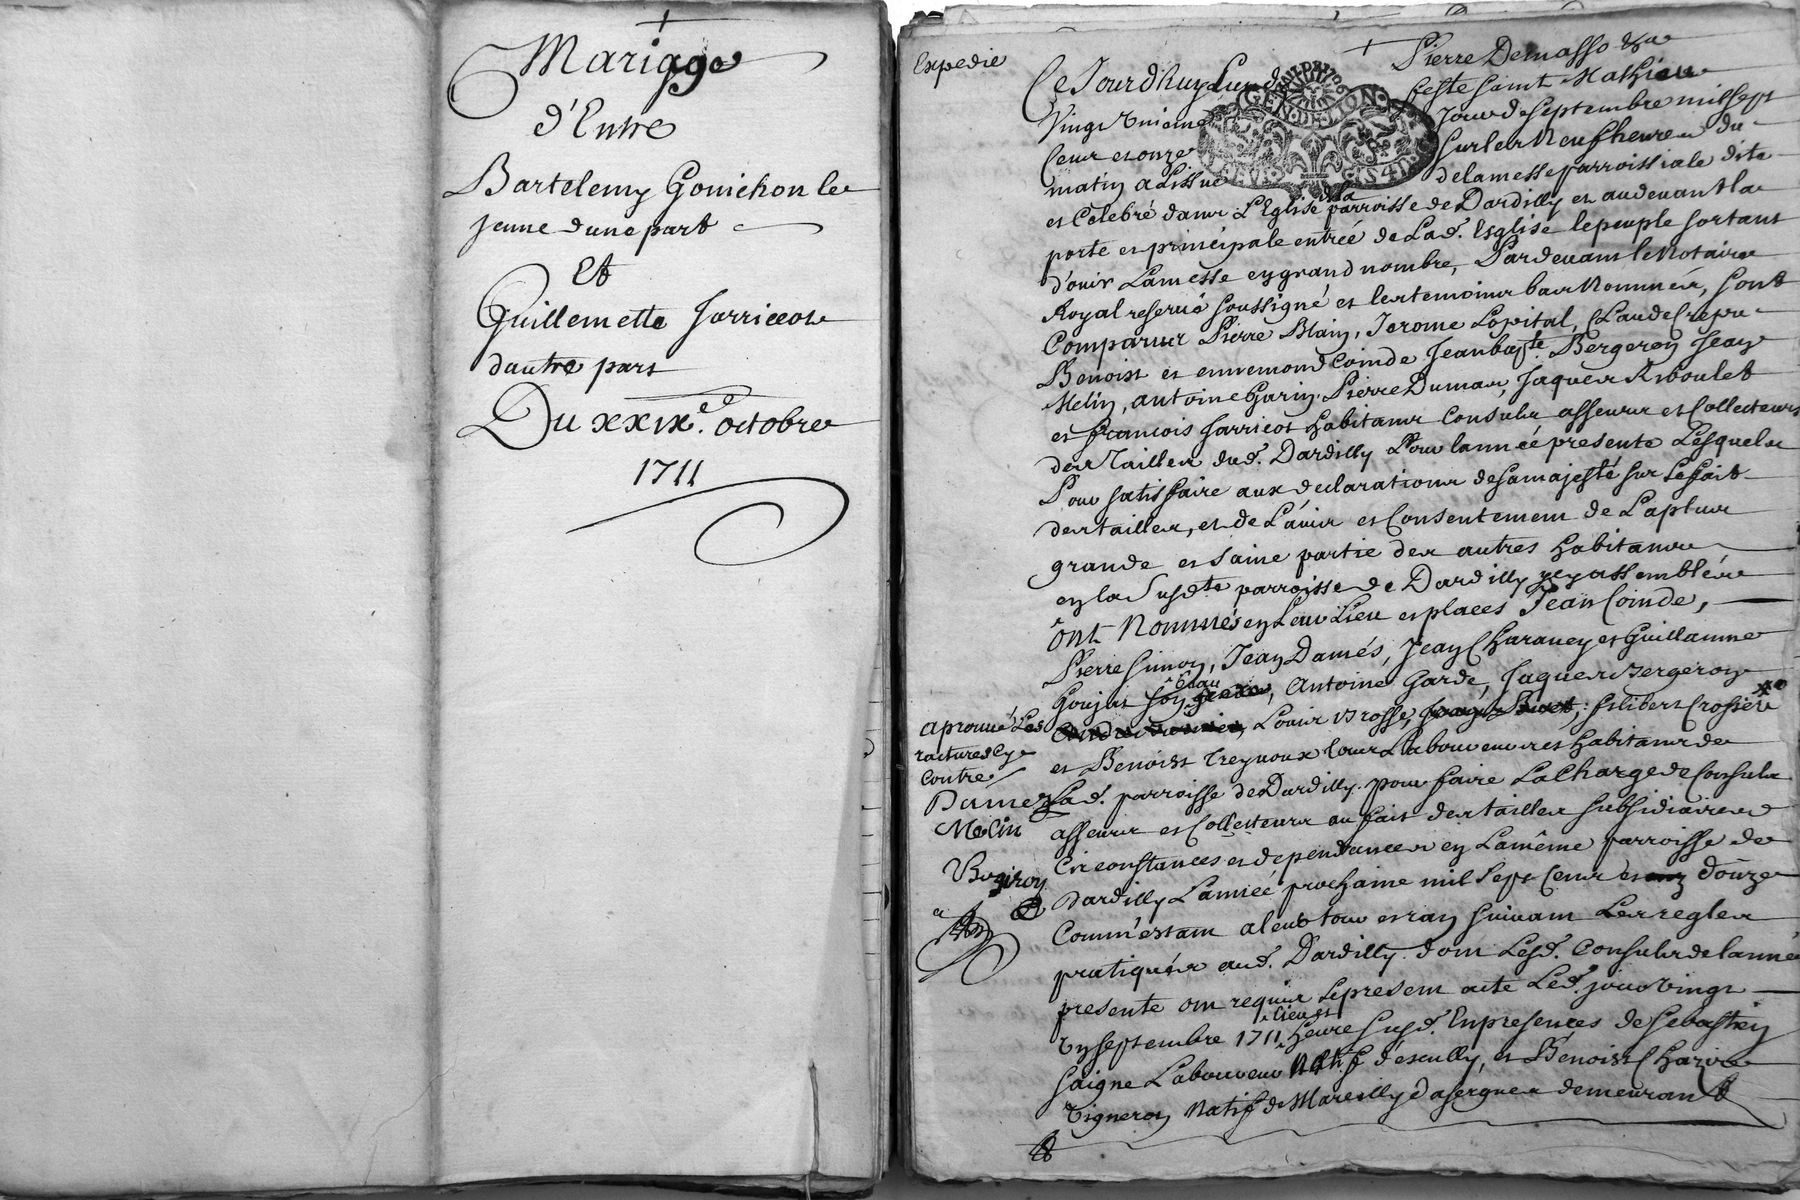 Mariage
d'Entre
Bartelemy Gonichon le
jeune dune part
Et
Guillemette Jarricot
dautre part
Du xxixe. octobre
1711
Expedie
Pierre Demasso
Ce Jourdhuy Lundy feste saint Mathieu
Vingt Unieme Jour de septembre mil sept
Cent et onze sur les Neuf heures du
matin a Lissue de la messe parroissiale dite
et Celebré dans L'Eglise de la parroisse de Dardilly et au devant la
porte et principale entrée de Lad. Esglise le peuple sortant
d'ouir La messe en grand nombre, Pardevant le Notaire
Royal reservé soussigné et les temoins bas Nommés, sont
Comparus Pierre Blain, Jerome Lopital, Claude Crepu
Benoist et ennemond Coinde Jean bapte. Bergeron Jean
Melin, antoine Garin Pierre Dumas, Jaques Riboulet
et francois Jarricot habitans Consuls asseurs et Collecteurs
des Tailles dud. Dardilly Pour lannéé presente Lesquels
Pour satisfaire aux declarations de sa majesté sur Le fait
des tailles, et de L'avis et Consentement de La plus
grande et saine partie des autres habitans
en la Susdte parroisse de Dardilly icy assemblés
ont Nommés en Leur Lieu et places Jean Coinde,
Pierre Simon, Jean Damés, Jean Charavey et Guillaume
Goujet, Antoine Garde, Jaques Bergeron
Louis Brosse, filibert Crosier
et Benoist Treynoux tous Laboureurs et habitans de
Lad. parroisse de Dardilly. pour faire La Charge de Consuls
asseurs et Collecteurs au fait des tailles subsidiaires
Circonstances et dependances en La même parroisse de
Dardilly L'année prochaine mil Sept Cent et douze
Comme estant a leur tour et rang suivant Les regles
pratiquées aud. Dardilly. dont Lesd. Consuls de lannée
presente ont requis Le present acte Led. jour Vingt
un septembre 1711 lieu et heure susd. En presences de Sebastien
Saigne Laboureur Natif d'escully, et Benoist
Vigneron Natif de Marcilly d'asergues demeurant
aprouvé Les
ratures cy
Contre
Damez
Melin
Bergiron